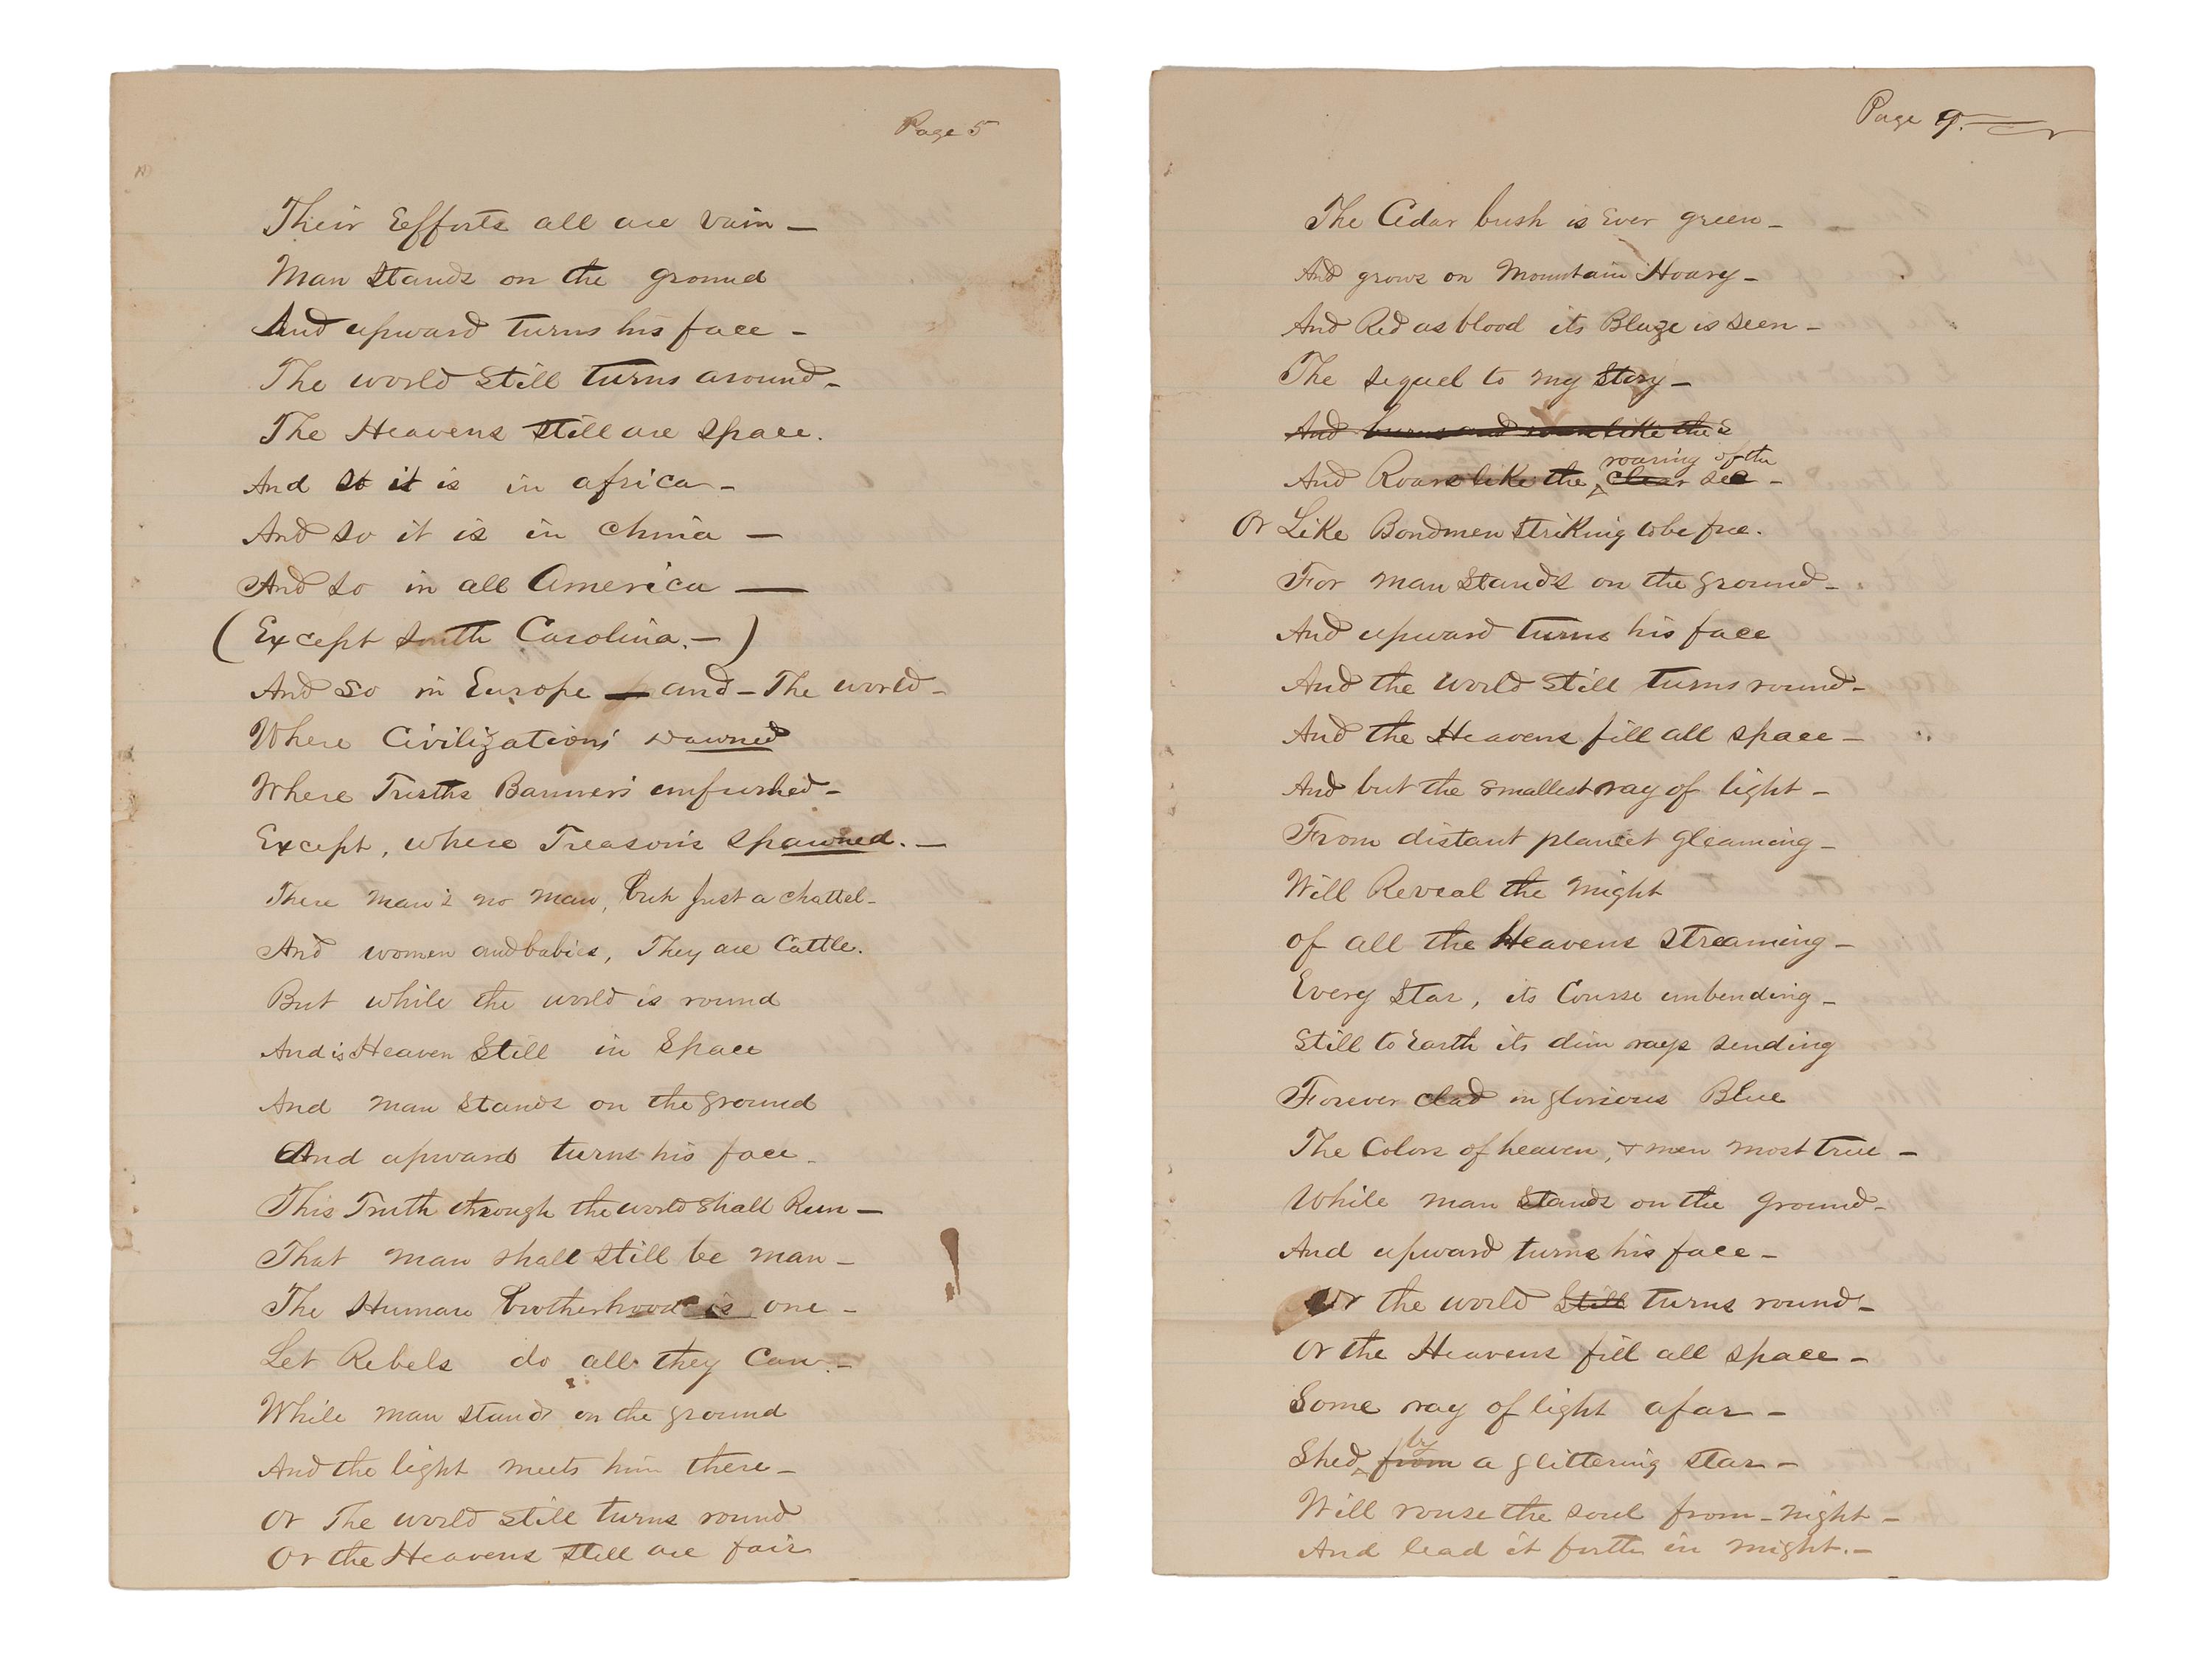 Page 5
Their Eefforts all are vain —
Man Stands on the ground
And upward turns his face —
The world Still turns around —
The Heavens Still are Space.
And so it is in africa —
And so it is in china —
And so in all America —
(Except South Carolina. —)
And so in Europe — and — The world —
Where Civilization's Dawned
Where Truths Banner's unfurled —
Except, where Treason's Spawned. —
There man's no man, but just a chattel —
And women and babies, They are Cattle.
But while the world is round
And is Heaven Still in Space
And man Stands on the ground
And upward turns his face —
This Truth through the world shall Run —
That man shall Still be man — !
The Human brotherhood is one —
Let Rebels do all they Can. —
While man stands on the ground
And the light meets him there —
Or The world still turns round
Or the Heavens Still are fair
Page 9.
The Cedar bush is Ever green —
And grows on Mountain Hoary —
And Red as blood its Blaze is Seen —
The Sequel to my Story —
And burns and like the
roaring of the
And Roars like the clear sea —
Or Like Bondmen Striking to be free.
For man Stands on the ground —
And upward turns his face
And the World Still turns round —
And the Heavens fill all space —
And but the smallest ray of light —
From distant planet gleaming —
Will Reveal the might
of all the Heavens Streaming —
Every Star, its Course unbending —
Still to Earth its dim rays sending
Forever clad in glorious Blue
The Colors of heaven, & men most true —
While man Stands on the ground —
And upward turns his face —
Or the world Still turns round —
Or the Heavens fill all space —
Some ray of light afar —
by
Shed from a glittering star —
Will rouse the soul from — night —
And lead it forth in might. —